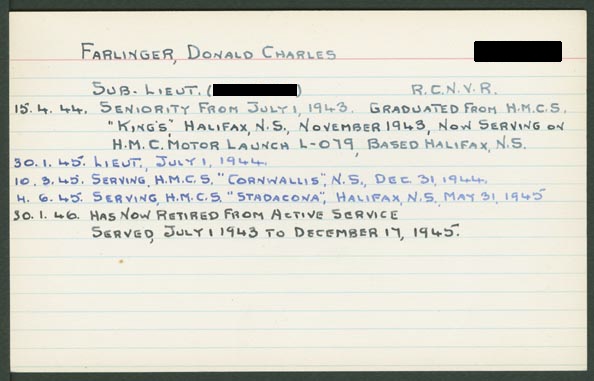 FARLINGER, DONALD CHARLES
SUB-LIEUT. ( ) R.C.N.V.R.
15.4.44. SENIORITY FROM JULY 1, 1943. GRADUATED FROM H.M.C.S.
"KING'S", HALIFAX, N.S., NOVEMBER 1943, NOW SERVING ON
H.M.C. MOTOR LAUNCH L-079, BASED HALIFAX, N.S.
30.1.45. LIEUT., JULY 1, 1944.
10.3.45. SERVING, H.M.C.S. "CORNWALLIS", N.S., DEC. 31, 1944.
4.6.45. SERVING, H.M.C.S. "STADACONA", HALIFAX, N.S. MAY 31, 1945
30.1.46. HAS NOW RETIRED FROM ACTIVE SERVICE
SERVED, JULY 1 1943 TO DECEMBER 17, 1945.